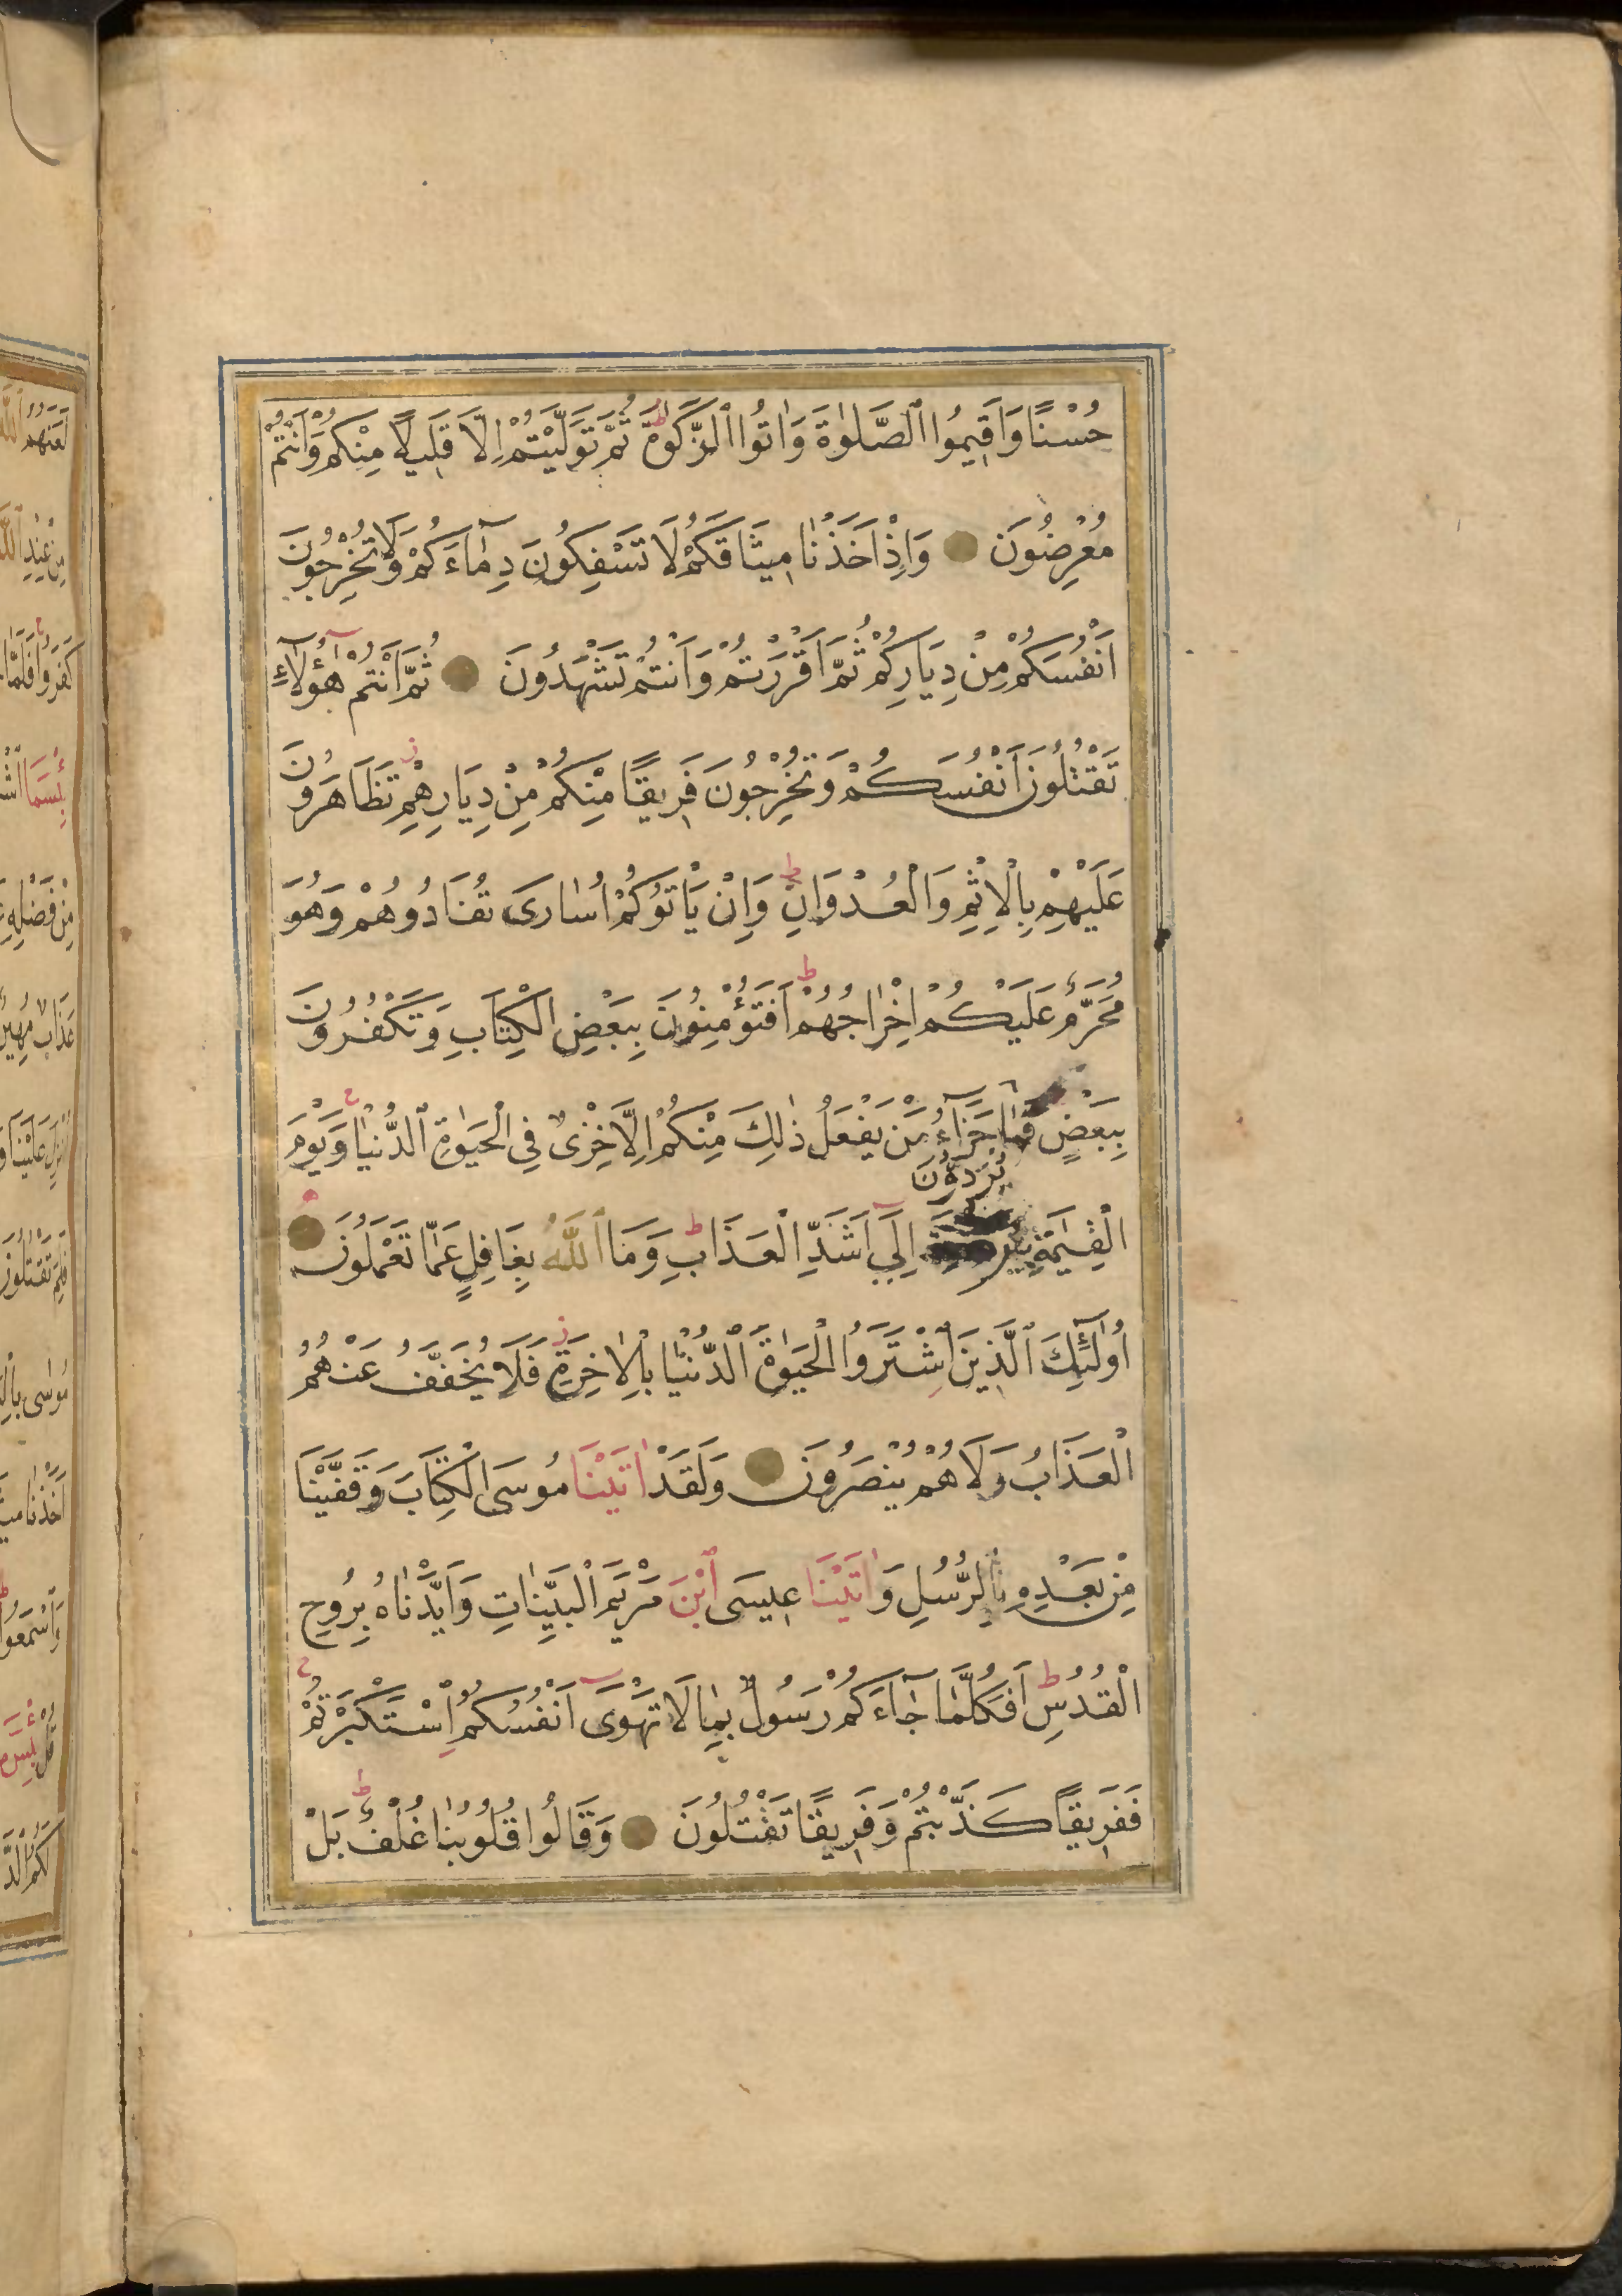 حُسْنًا وَاَقِيمُوا ٱلصَّلٰوةَ وَاٰتُوا ٱلزَّكٰوةَ ط ثُمَّ تَوَلَّيْتُمْ اِلَّا قَلِيلًا مِنْكُمْ وَاَنْتُمْ
مُعْرِضُونَ وَاِذْ اَخَذْنَا مِيثَاقَكُمْ لَا تَسْفِكُونَ دِمَآءَكُمْ وَلَا تُخْرِجُونَ
اَنْفُسَكُمْ مِنْ دِيَارِكُمْ ثُمَّ اَقْرَرْتُمْ وَاَنْتُمْ تَشْهَدُونَ ثُمَّ اَنْتُمْ هٰٓؤُلَآءِ
تَقْتُلُونَ اَنْفُسَكُمْ وَتُخْرِجُونَ فَرِيقًا مِنْكُمْ مِنْ دِيَارِهِمْ ز تَظَاهَرُونَ
عَلَيْهِمْ بِالْاِثْمِ وَالْعُدْوَانِ ط وَاِنْ يَأْتُوكُمْ اُسَارَى تُفَادُوهُمْ وَهُوَ
مُحَرَّمٌ عَلَيْكُمْ اِخْرَاجُهُمْ ط اَفَتُؤْمِنُونَ بِبَعْضِ الْكِتَابِ وَتَكْفُرُونَ
بِبَعْضٍ فَمَا جَزَآءُ مَنْ يَفْعَلُ ذٰلِكَ مِنْكُمْ اِلَّا خِزْىٌ فِي الْحَيٰوةِ ٱلدُّنْيَا ج وَيَوْمَ
يُرَدُّونَ
الْقِيٰمَةِ اِلَى اَشَدِّ الْعَذَابِ ط وَمَا ٱللّٰهُ بِغَافِلٍ عَمَّا تَعْمَلُونَ
اُولٰٓئِكَ ٱلَّذِينَ اشْتَرَوُا الْحَيٰوةَ ٱلدُّنْيَا بِالْاٰخِرَةِ ز فَلَا يُخَفَّفُ عَنْهُمُ
الْعَذَابُ وَلَا هُمْ يُنْصَرُونَ وَلَقَدْ اٰتَيْنَا مُوسَى الْكِتَابَ وَقَفَّيْنَا
مِنْ بَعْدِهِ بِالرُّسُلِ وَاٰتَيْنَا عِيسَى ٱبْنَ مَرْيَمَ الْبَيِّنَاتِ وَاَيَّدْنَاهُ بِرُوحِ
الْقُدُسِ ط اَفَكُلَّمَا جَآءَكُمْ رَسُولٌ بِمَا لَا تَهْوَىٓ اَنْفُسُكُمُ اسْتَكْبَرْتُمْ ج
فَفَرِيقًا كَذَّبْتُمْ وَفَرِيقًا تَقْتُلُونَ وَقَالُوا قُلُوبُنَا غُلْفٌ ط بَلْ